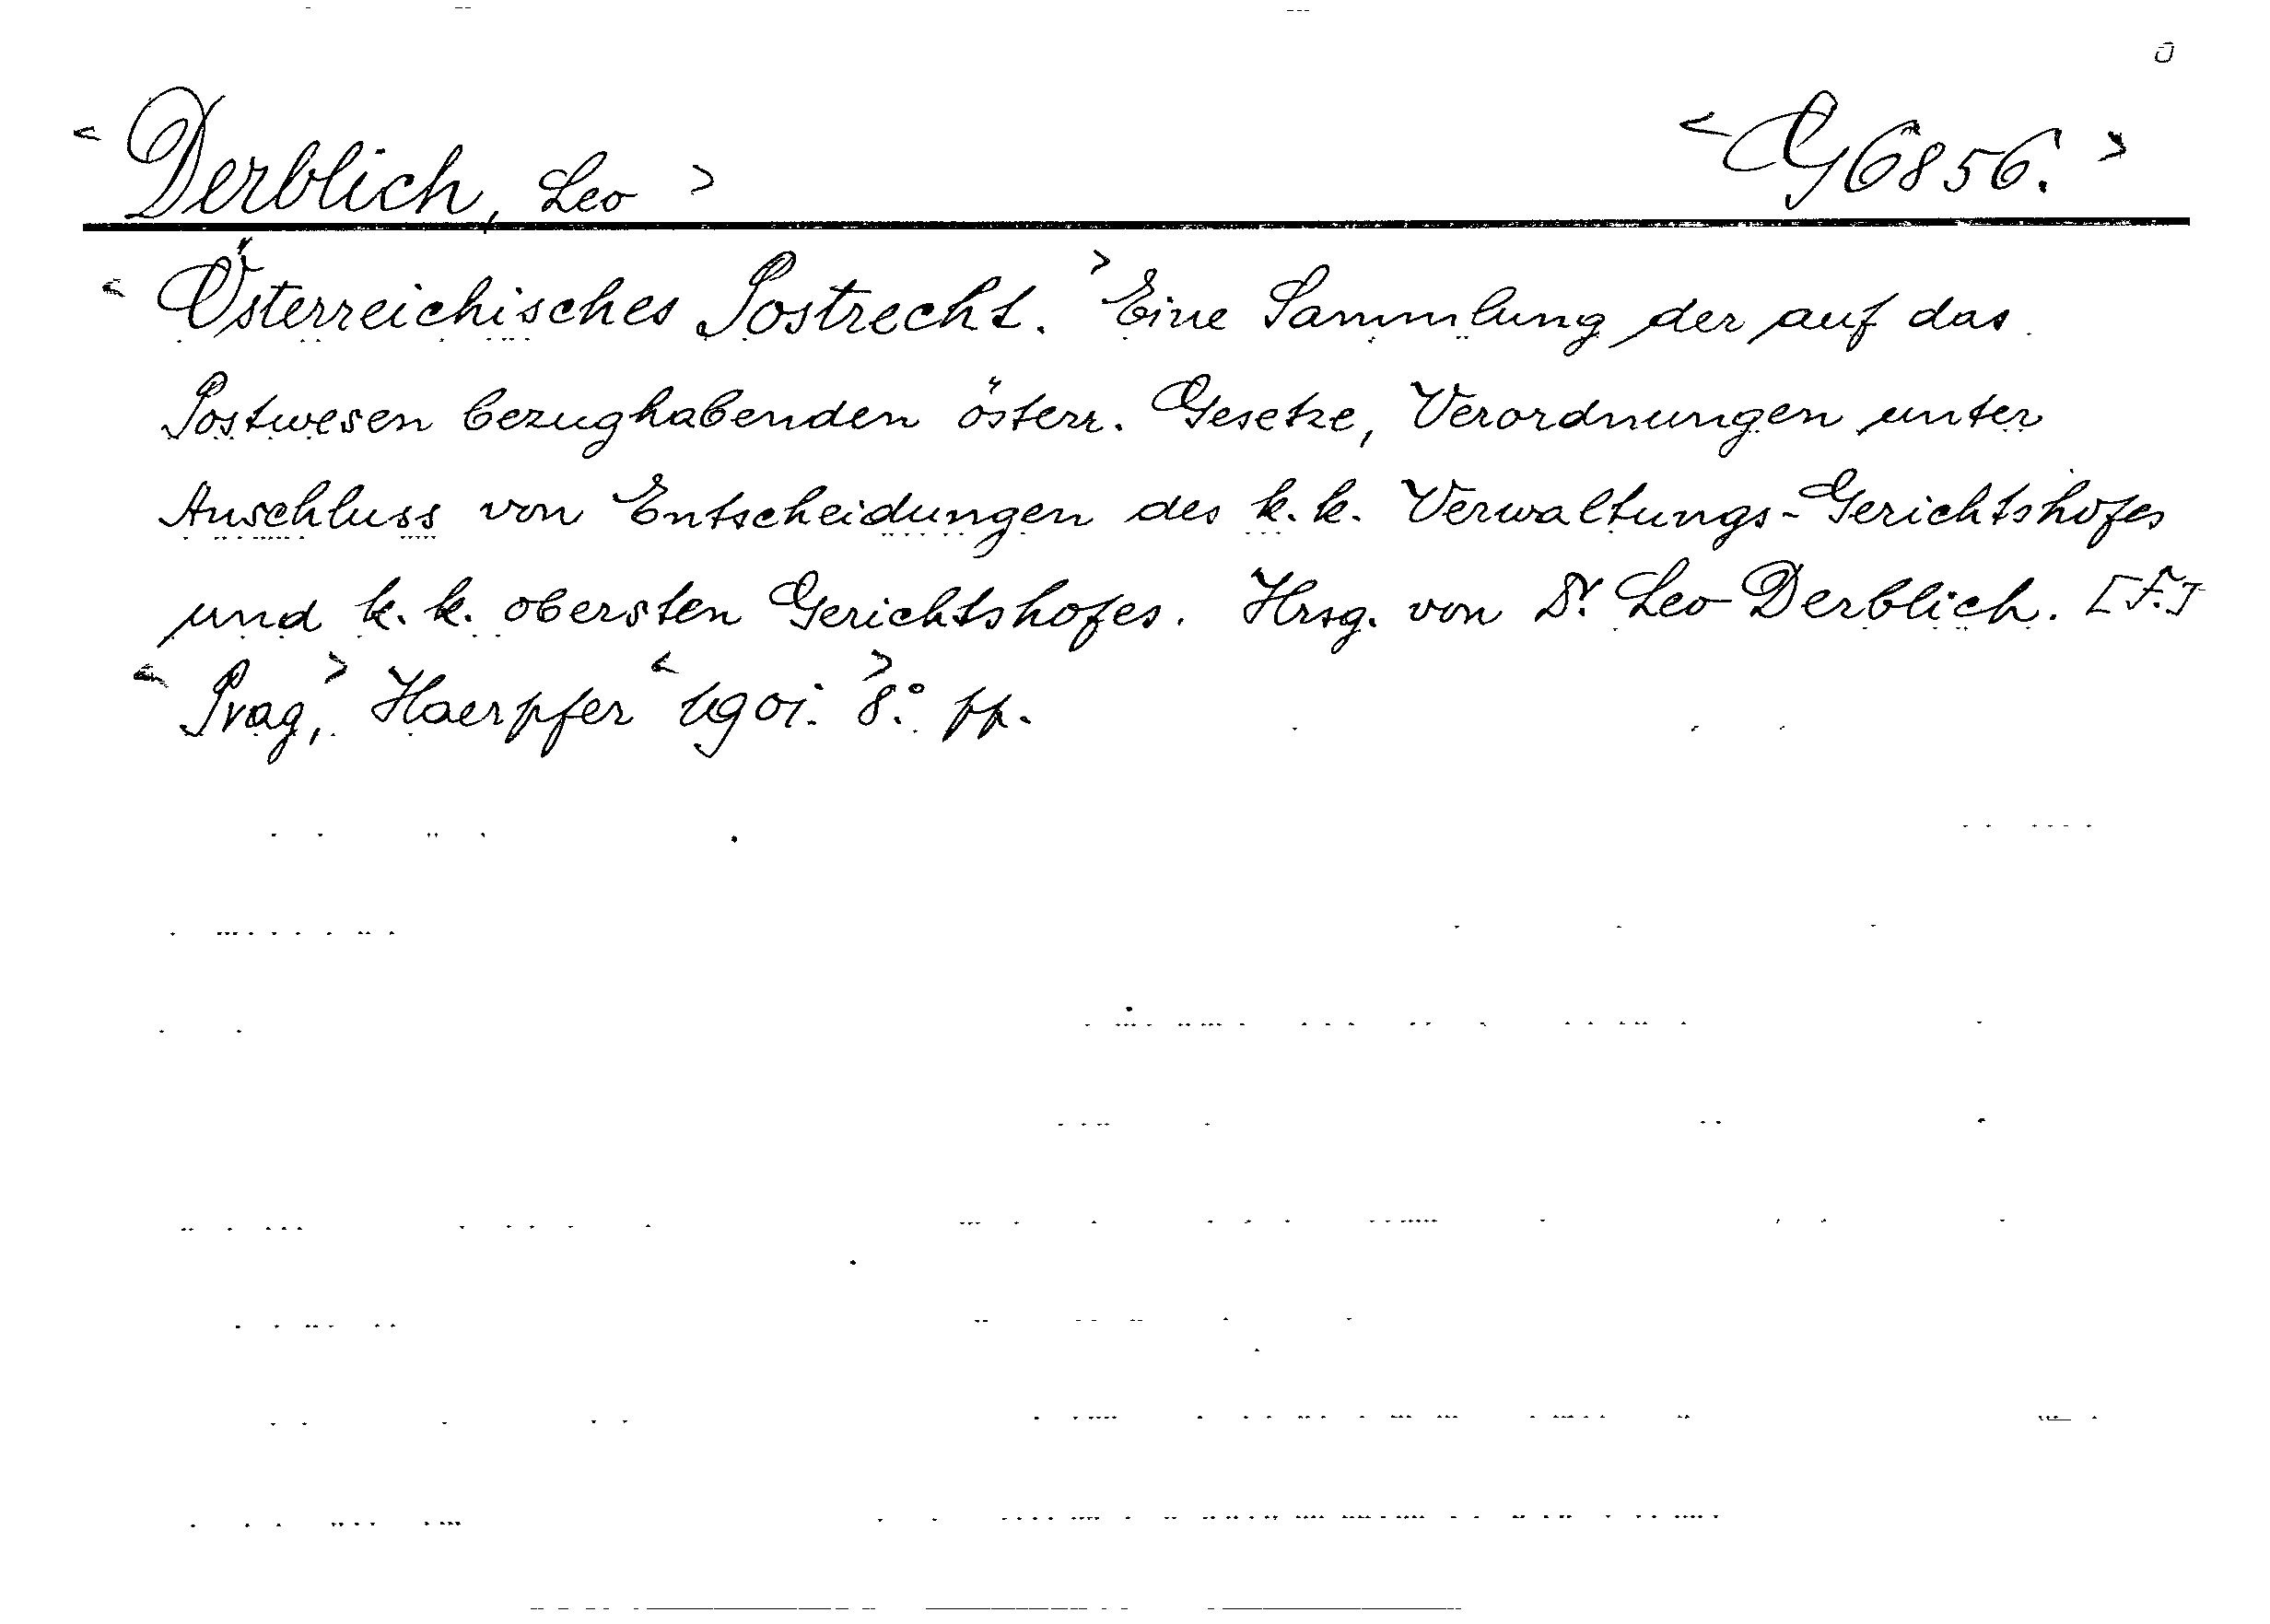 < Derblich, Leo > < G 6856. >
< Österreichisches Postrecht. > Eine Sammlung der auf das
Postwesen bezughabenden österr. Gesetze, Verordnungen unter
Anschluss von Entscheidungen des k. k. Verwaltungs-Gerichtshofes
und k. k. obersten Gerichtshofes. Hrsg. von Dr. Leo Derblich. [F.]
< Prag, > Haerpfer < 1901. > 8.° pp.